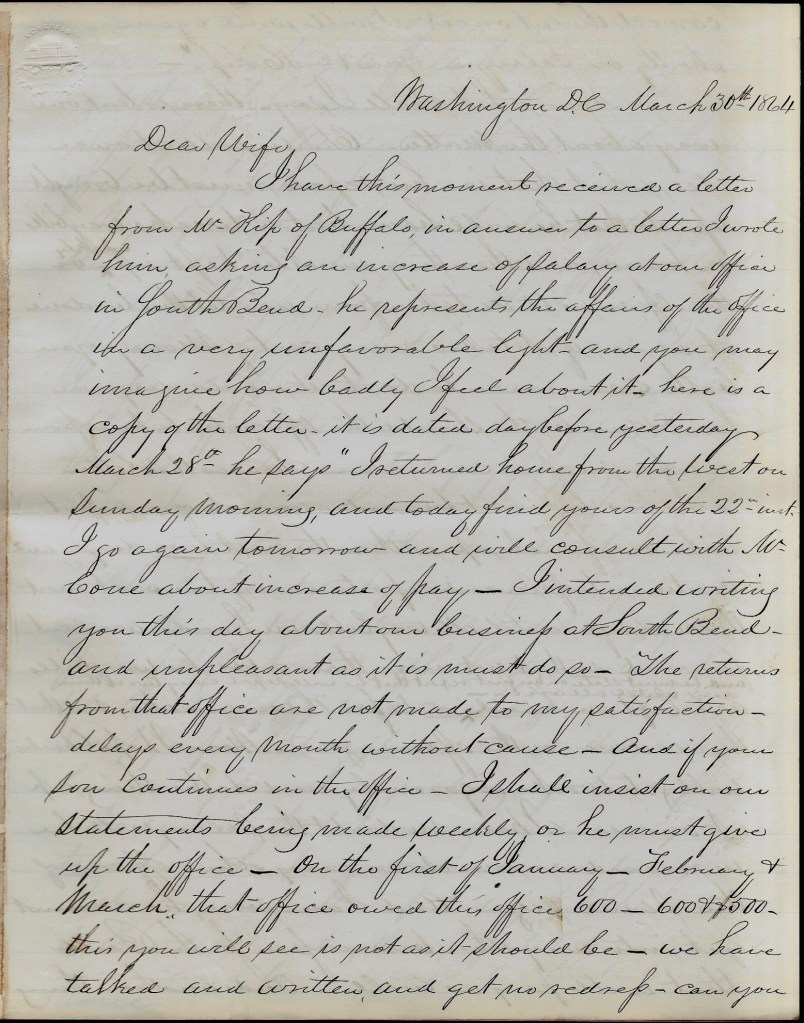 Washington D.C March 30th 1864
Dear Wife
I have this moment received a letter
from Mr Kip of Buffalo, in answer to a letter I wrote
him, asking an increase of salary at our office
in South Bend - he represents the affairs of the office
in a very unfavorable light - and you may
imagine how badly I feel about it - here is a
copy of the letter - it is dated day before yesterday
March 28th he says "I returned home from the west on
Sunday morning, and today find yours of the 22nd inst.
I go again tomorrow and will consult with Mr
Cone about increase of pay — I intended writing
you this day about our business at South Bend -
and unpleasant as it is must do so - The returns
from that office are not made to my satisfaction -
delays every month without cause - And if your
son continues in the office - I shall insist on our
statements being made weekly, or he must give
up the office — On the first of January - February &
March, that office owed this office, 600 — 600 & $500 -
this you will see is not as it should be - we have
talked and written, and get no redress - can you